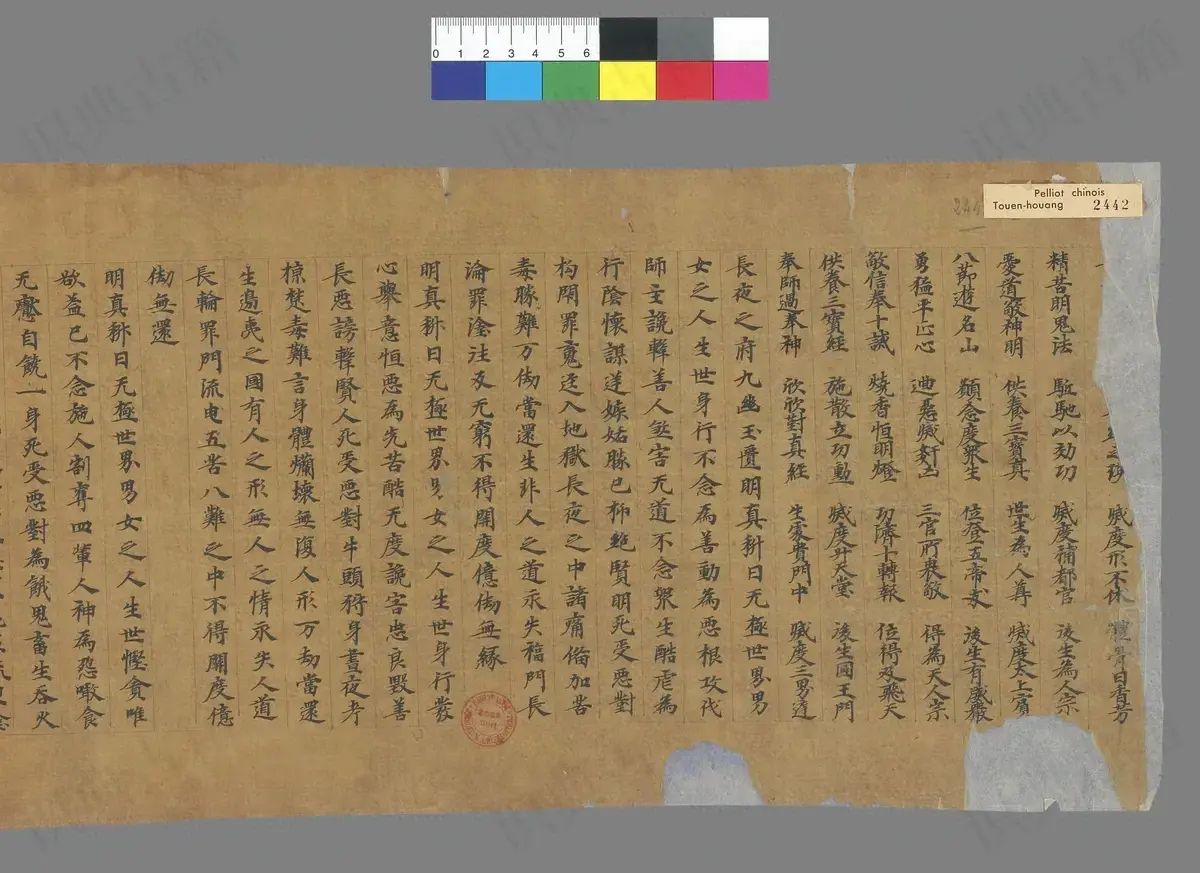 Pelliot chinois
Touen-houang 2442
0 1 2 3 4 5 6
滅度形不休 體骨自香芳
精苦明鬼法 駈馳以効功 滅度酆都官 後生為人宗
愛道敬神明 供養三寶真 世世為人尊 滅度太上賓
八節遊名山 願念度衆生 位登五帝友 後生有威嚴
勇猛平心 迴惡滅奸凶 三官所崇敬 得為天人宗
敬信奉十誡 燒香恒明燈 功濟十轉報 位得及飛天
供養三寶經 施散立功勳 滅度昇天堂 後生國王門
奉師過奉神 欣欣對真經 生處貴門中 滅度三界逹
長夜之府九幽玉匱明真科曰无極世界男
女之人生世身行不念為善動為惡根攻伐
師主譭擊善人無害无道不念衆生酷虐為
行陰懷謀逆嫉妬勝己抑絶賢明死受惡對
构閇罪䰟迬入地獄長夜之中諸痛俻加苦
毒勝難万劫當還生非人之道永失福門長
淪罪塗注及无窮不得開度億劫無緣
明真科曰无極世界男女之人生世身行發
心舉意恒惡為先苦酷无度譭害忠良毀善
長惡謗擊賢人死受惡對牛頭狩身晝夜考
掠楚毒難言身體爛壞無復人形万劫當還
生邊夷之國有人之形無人之情永失人道
長輪罪門流曳五苦八難之中不得開度億
劫無還
明真科曰无極世界男女之人生世慳貪唯
欲益己不念施人割奪四輩人神為怨噉食
无懕自饒一身死受惡對為餓鬼畜生吞火